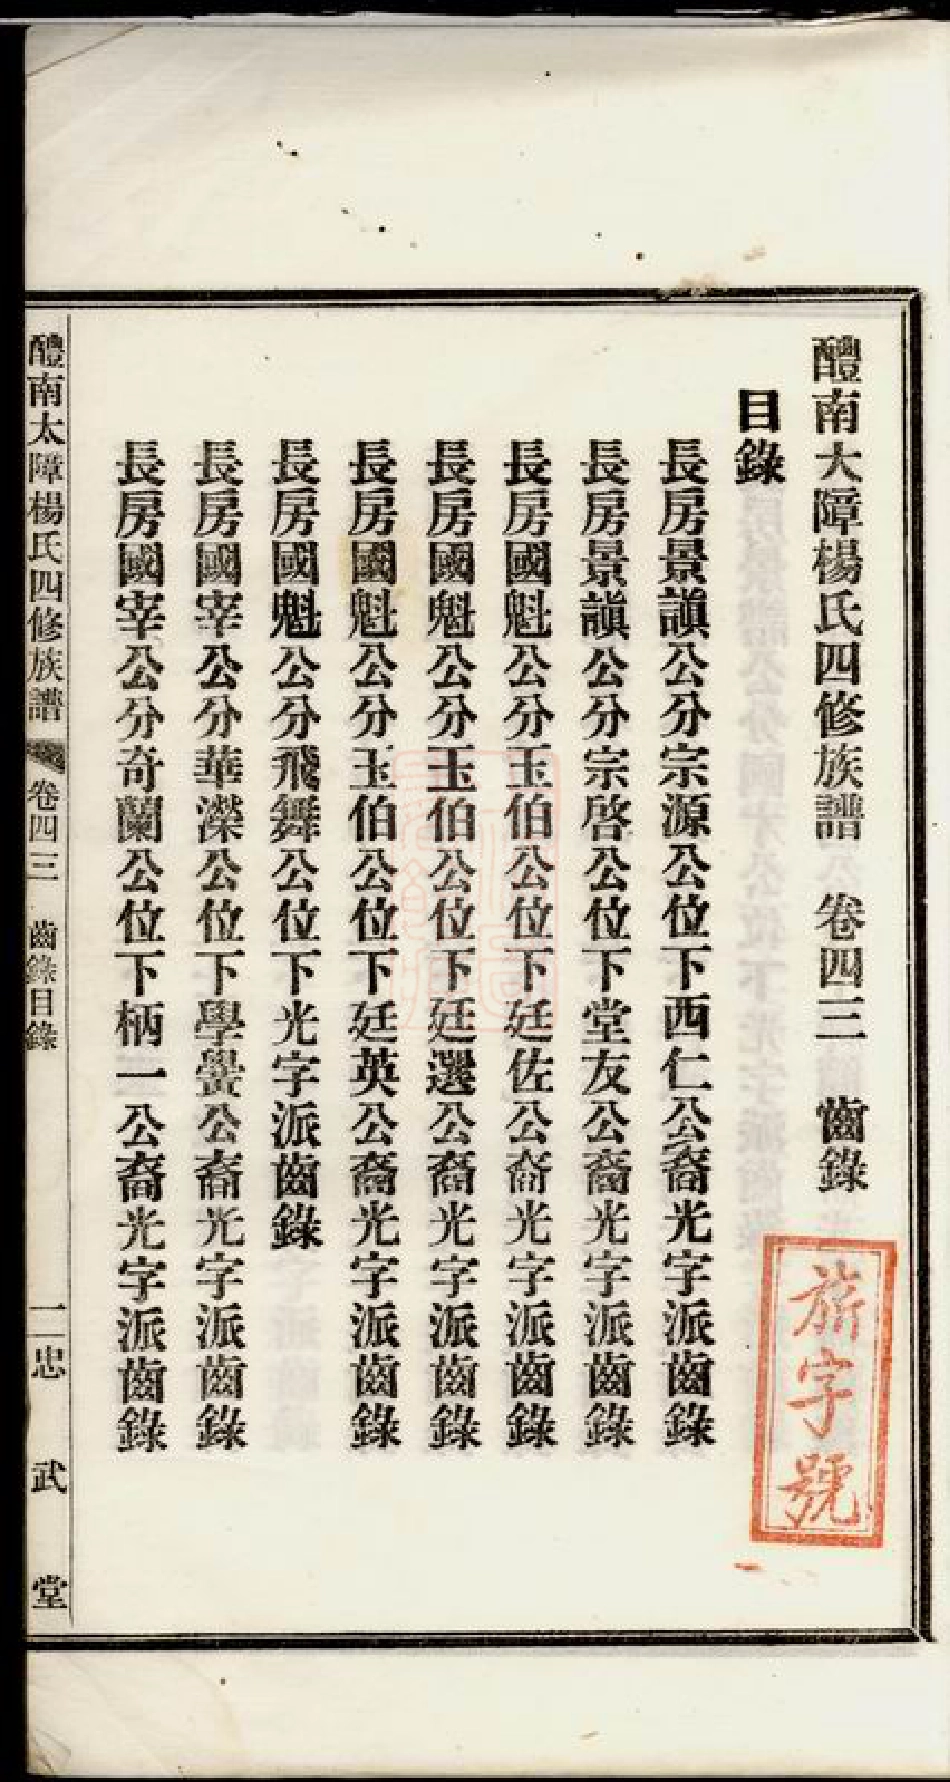 醴南大障楊氏四修族譜 卷四三 齒錄
目錄
長房景謓公分宗源公位下西仁公裔光字派齒錄
長房景謓公分宗啓公位下堂友公裔光字派齒錄
長房國魁公分玉伯公位下廷佐公裔光字派齒錄
長房國魁公分玉伯公位下廷選公裔光字派齒錄
長房國魁公分玉伯公位下廷英公裔光字派齒錄
長房國魁公分飛舞公位下光字派齒錄
長房國宰公分華濴公位下學黌公裔光字派齒錄
長房國宰公分奇蘭公位下柄一公裔光字派齒錄
醴南太障楊氏四修族譜 卷四三 齒錄目錄 一 忠武堂
字號